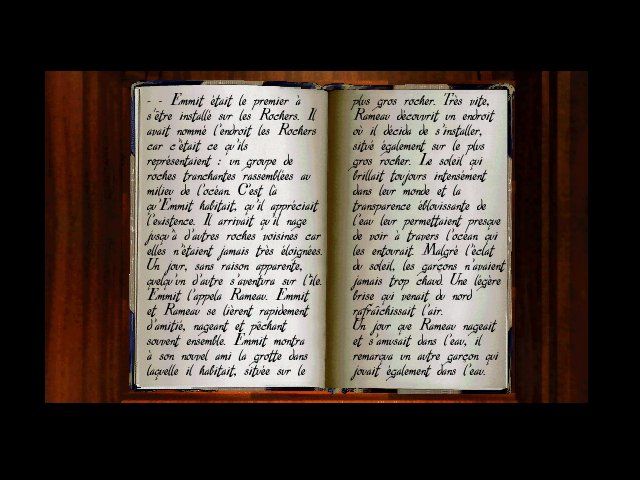 - - Emmit était le premier à
s'être installé sur les Rochers. Il
avait nommé l'endroit les Rochers
car c'était ce qu'ils
représentaient : un groupe de
roches tranchantes rassemblées au
milieu de l'océan. C'est là
qu'Emmit habitait, qu'il appréciait
l'existence. Il arrivait qu'il nage
jusqu'à d'autres roches voisines car
elles n'étaient jamais très éloignées.
Un jour, sans raison apparente,
quelqu'un d'autre s'aventura sur l'île.
Emmit l'appela Rameau. Emmit
et Rameau se lièrent rapidement
d'amitié, nageant et pêchant
souvent ensemble. Emmit montra
à son nouvel ami la grotte dans
laquelle il habitait, située sur le
plus gros rocher. Très vite,
Rameau découvrit un endroit
où il décida de s'installer,
situé également sur le plus
gros rocher. Le soleil qui
brillait toujours intensément
dans leur monde et la
transparence éblouissante de
l'eau leur permettaient presque
de voir à travers l'océan qui
les entourait. Malgré l'éclat
du soleil, les garçons n'avaient
jamais trop chaud. Une légère
brise qui venait du nord
rafraîchissait l'air.
Un jour que Rameau nageait
et s'amusait dans l'eau, il
remarqua un autre garçon qui
jouait également dans l'eau.